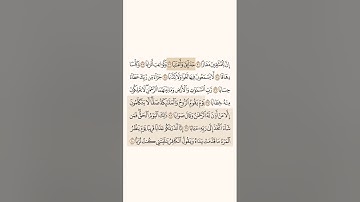 إِنَّ لِلْمُتَّقِينَ مَفَازًا ۝ حَدَائِقَ وَأَعْنَابًا ۝ وَكَوَاعِبَ أَتْرَابًا ۝ وَكَأْسًا
دِهَاقًا ۝ لَا يَسْمَعُونَ فِيهَا لَغْوًا وَلَا كِذَّابًا ۝ جَزَاءً مِنْ رَبِّكَ عَطَاءً
حِسَابًا ۝ رَبِّ السَّمَاوَاتِ وَالْأَرْضِ وَمَا بَيْنَهُمَا الرَّحْمَٰنِ لَا يَمْلِكُونَ
مِنْهُ خِطَابًا ۝ يَوْمَ يَقُومُ الرُّوحُ وَالْمَلَائِكَةُ صَفًّا لَا يَتَكَلَّمُونَ
إِلَّا مَنْ أَذِنَ لَهُ الرَّحْمَٰنُ وَقَالَ صَوَابًا ۝ ذَٰلِكَ الْيَوْمُ الْحَقُّ فَمَنْ
شَاءَ اتَّخَذَ إِلَىٰ رَبِّهِ مَآبًا ۝ إِنَّا أَنْذَرْنَاكُمْ عَذَابًا قَرِيبًا يَوْمَ يَنْظُرُ
الْمَرْءُ مَا قَدَّمَتْ يَدَاهُ وَيَقُولُ الْكَافِرُ يَا لَيْتَنِي كُنْتُ تُرَابًا ۝